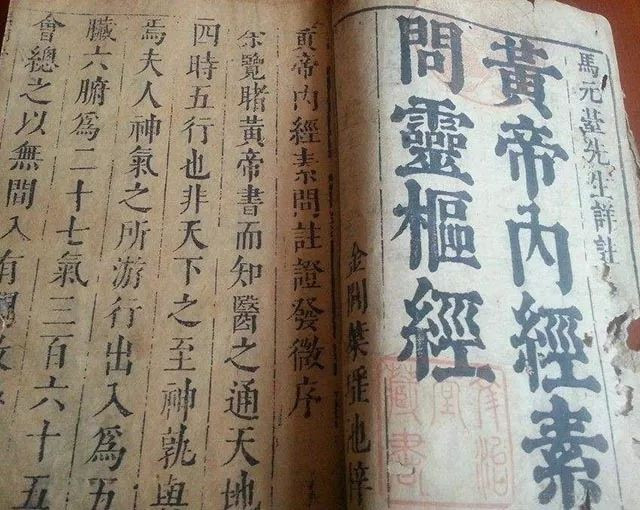 馬元臺先生詳註
黃帝內經素
問靈樞經
金閶葉瑤池梓
堂
藏書
黃帝內經素問註證發微序
余覽睹黃帝書而知醫之通天地
四時五行也非天下之至神孰與
焉夫人神氣之所游行出入爲五
臟六腑爲二十七氣三百六十五
會總之以無間入有間故